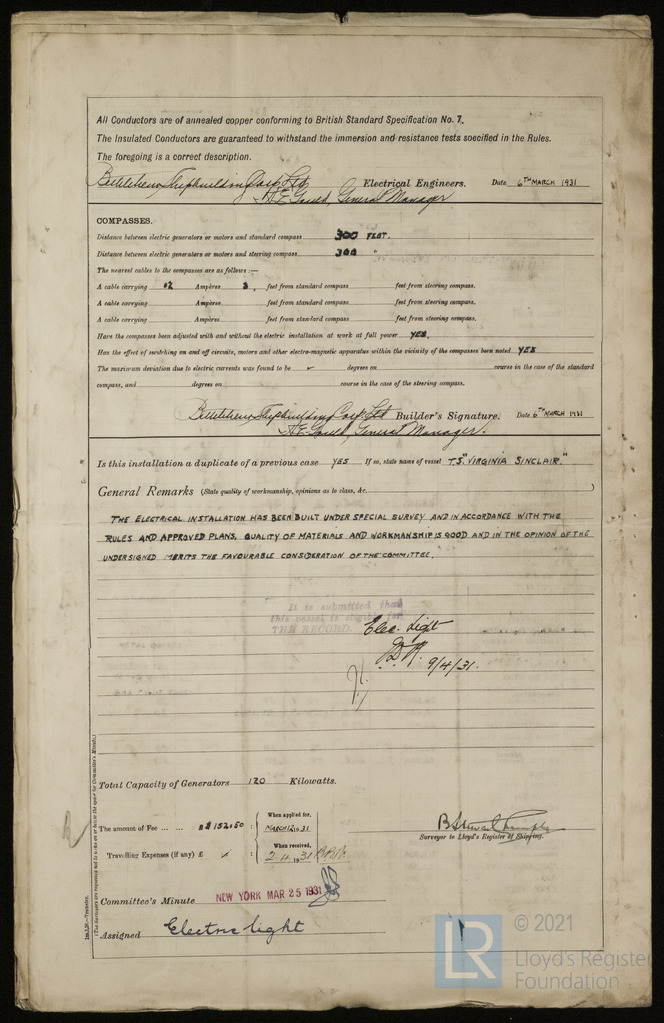 All Conductors are of annealed copper conforming to British Standard Specification No. 7.
The Insulated Conductors are guaranteed to withstand the immersion and resistance tests specified in the Rules.
The foregoing is a correct description.
Bethlehem Shipbuilding Corp. Ltd Electrical Engineers. Date 6TH MARCH 1931
A E Gould, General Manager
COMPASSES.
Distance between electric generators or motors and standard compass 300 FEET.
Distance between electric generators or motors and steering compass 300 "
The nearest cables to the compasses are as follows :—
A cable carrying .2 Ampères 3. feet from standard compass feet from steering compass.
A cable carrying Ampères feet from standard compass feet from steering compass.
A cable carrying Ampères feet from standard compass feet from steering compass.
Have the compasses been adjusted with and without the electric installation at work at full power YES.
Has the effect of switching on and off circuits, motors and other electro-magnetic apparatus within the vicinity of the compasses been noted YES
The maximum deviation due to electric currents was found to be degrees on course in the case of the standard
compass, and degrees on course in the case of the steering compass.
Bethlehem Shipbuilding Corp. Ltd Builder's Signature. Date 6TH MARCH 1931
A E Gould, General Manager.
Is this installation a duplicate of a previous case YES If so, state name of vessel T.S. "VIRGINIA SINCLAIR."
General Remarks (State quality of workmanship, opinions as to class, &c. )
THE ELECTRICAL INSTALLATION HAS BEEN BUILT UNDER SPECIAL SURVEY AND IN ACCORDANCE WITH THE
RULES AND APPROVED PLANS. QUALITY OF MATERIALS AND WORKMANSHIP IS GOOD AND IN THE OPINION OF THE
UNDERSIGNED MERITS THE FAVOURABLE CONSIDERATION OF THE COMMITTEE.
It is submitted that
this vessel is eligible for
THE RECORD. Elec. Light
9/4/31.
Total Capacity of Generators 120 Kilowatts.
The amount of Fee ... ... $ 152.50 : When applied for, MARCH 12, 1931
Travelling Expenses (if any) £ : When received, 2.4.1931
Surveyor to Lloyd's Register of Shipping.
Committee's Minute NEW YORK MAR 25 1931
Assigned Electric light
(The Surveyors are requested not to write on or below the space for Committee's Minute.)
LR © 2021
Lloyd's Register
Foundation